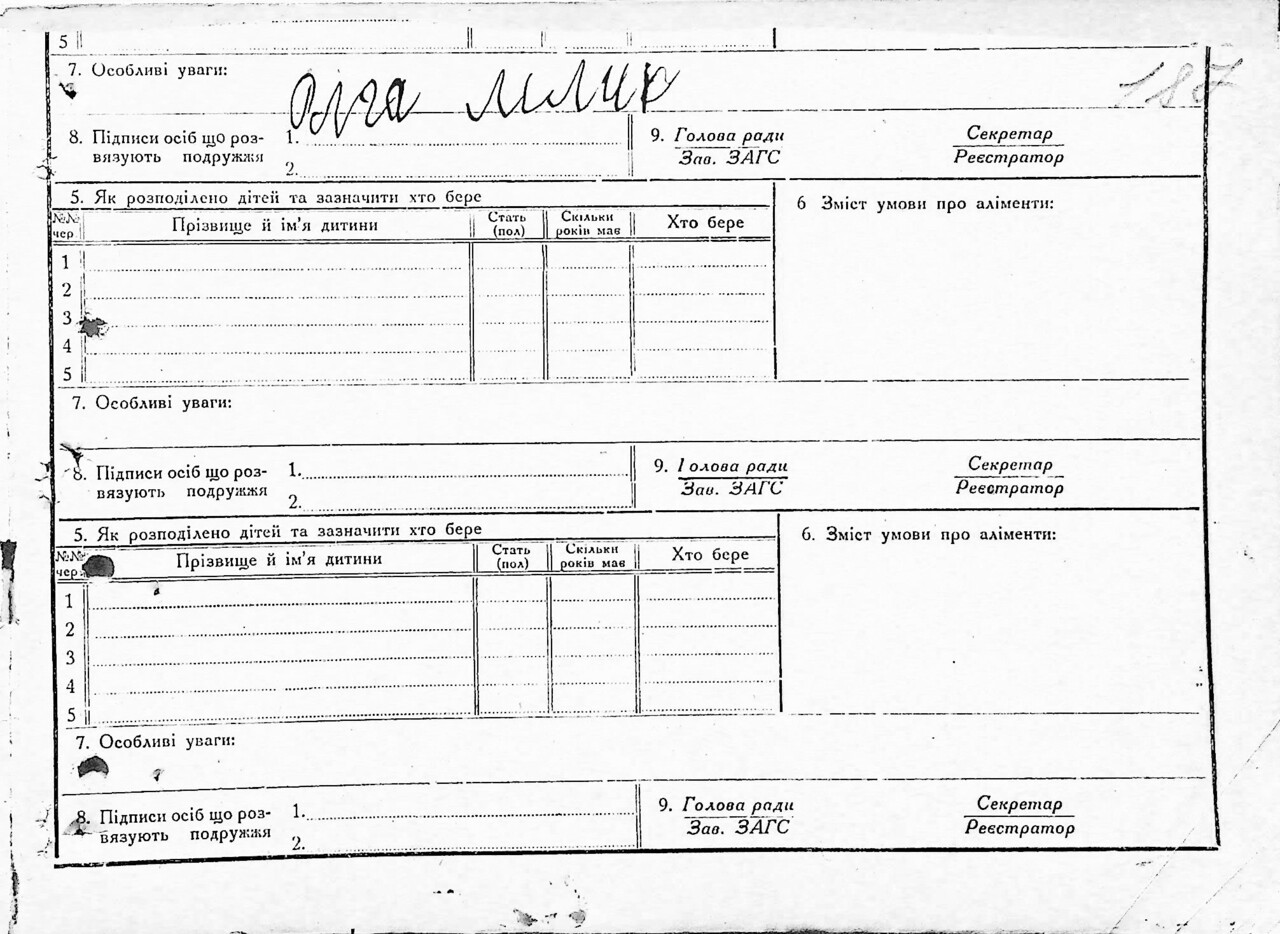 5
7. Особливі уваги:
187
8. Підписи осіб що роз-
вязують подружжя
1.
2.
9. Голова ради
Зав. ЗАГС
Секретар
Реєстратор
5. Як розподілено дітей та зазначити хто бере
№№ чер. Прізвище й ім'я дитини Стать (пол) Скільки років має Хто бере
6 Зміст умови про аліменти:
1
2
3
4
5
7. Особливі уваги:
8. Підписи осіб що роз-
вязують подружжя
1.
2.
9. Голова ради
Зав. ЗАГС
Секретар
Реєстратор
5. Як розподілено дітей та зазначити хто бере
№№ чер. Прізвище й ім'я дитини Стать (пол) Скільки років має Хто бере
6. Зміст умови про аліменти:
1
2
3
4
5
7. Особливі уваги:
8. Підписи осіб що роз-
вязують подружжя
1.
2.
9. Голова ради
Зав. ЗАГС
Секретар
Реєстратор